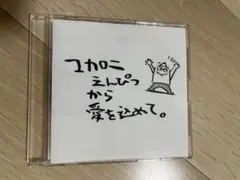 マカロニ
えんぴつ
から
愛を込めて。